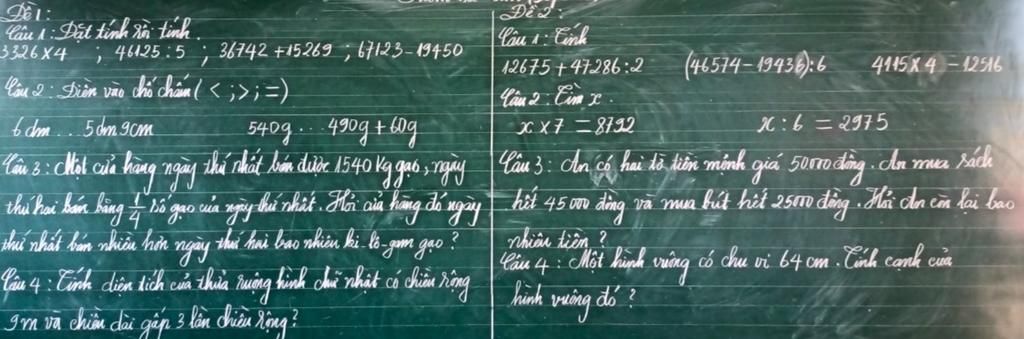 Đề 1:
Câu 1: Đặt tính rồi tính.
3326 x 4 ; 46125 : 5 ; 36742 + 15269 ; 67123 - 19450
Câu 2: Điền vào chỗ chấm ( < ; > ; = )
6 dm ... 5 dm 9 cm 540g ... 490g + 60g
Câu 3: Một cửa hàng ngày thứ nhất bán được 1540 kg gạo, ngày
thứ hai bán bằng 1/4 số gạo của ngày thứ nhất. Hỏi cửa hàng đó ngày
thứ nhất bán nhiều hơn ngày thứ hai bao nhiêu ki-lô-gam gạo ?
Câu 4: Tính diện tích của thửa ruộng hình chữ nhật có chiều rộng
9m và chiều dài gấp 3 lần chiều rộng?
Đề 2:
Câu 1: Tính
12675 + 47286 : 2 (46574 - 19436) : 6 4115 x 4 - 12516
Câu 2: Tìm x.
x x 7 = 8792 x : 6 = 2975
Câu 3: An có hai tờ tiền mệnh giá 50000 đồng. An mua sách
hết 45000 đồng và mua bút hết 25000 đồng. Hỏi An còn lại bao
nhiêu tiền ?
Câu 4: Một hình vuông có chu vi 64 cm. Tính cạnh của
hình vuông đó ?